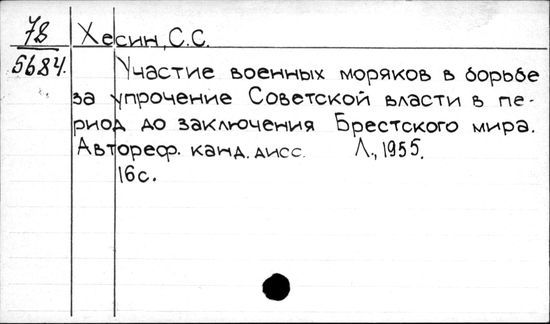 78 Хесин, С.С.
5684. Участие военных моряков в борьбе
за упрочение Советской власти в пе-
риод до заключения Брестского мира.
Автореф. канд. дисс. Л., 1955.
16с.